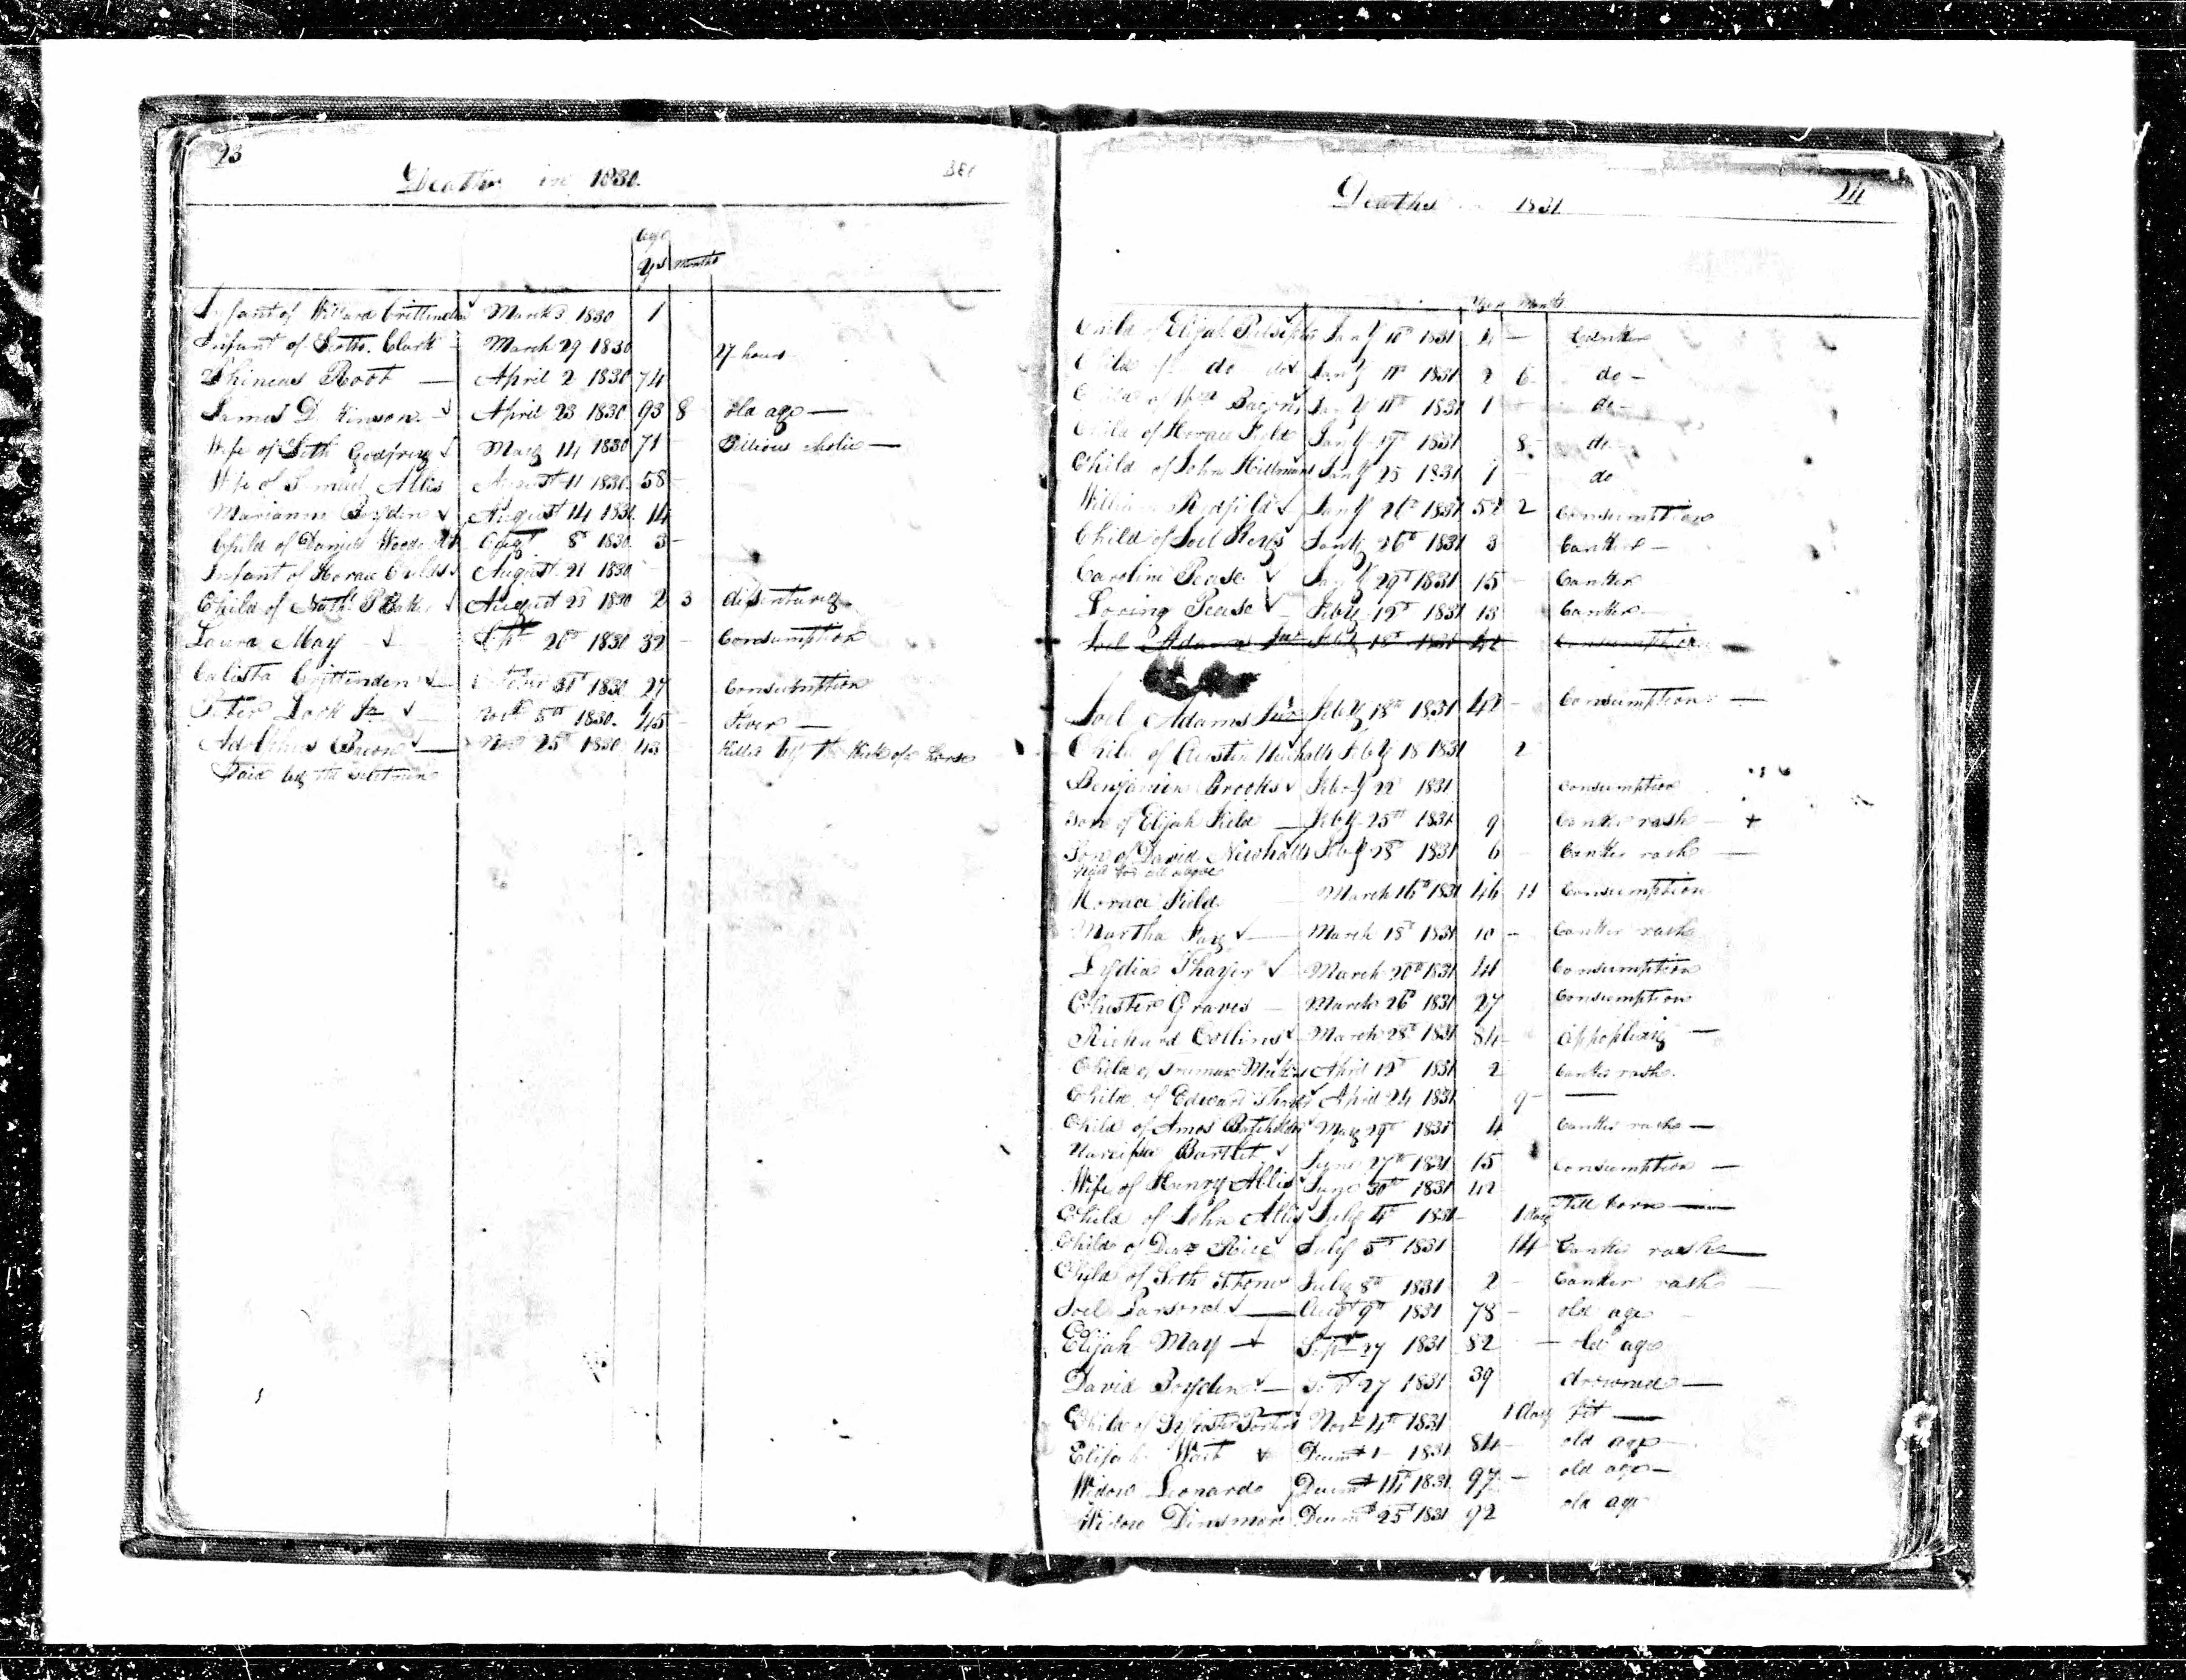 23
Deaths in 1830.
age
yrs months
Infant of Willard Crittenden March 3 1830 1
Infant of Seth Clark March 29 1830 27 hours
Phineas Root — April 2 1830 74
James D. Kinson April 23 1830 93 8 old age —
Wife of Seth Godfrey May 14 1830 71 Billious cholic —
Wife of Allis August 11 1830 58
Marianne Boyden August 14 1830 14
Child of Daniel Augt 8th 1830 3
Infant of Horace Childs August 21 1830
Child of Nathl P Baker August 23 1830 2 3 disentary
Laura May Sept 20th 1830 32 Consumption
Calista Crittenden October 31st 1830 27 Consumption
Peter Jr 5th 1830 45 Fever —
Bacon — Nov 25th 1830 43 Killed by the kick of a horse
Paid by the
Deaths in 1831
24
Years Month
Child of Elijah Jany 10th 1831 4 — Canker
Child of do do Jany 11th 1831 2 6 do —
Child of Bacon Jany 11th 1831 1 do —
Child of Horace Field Jany 17th 1831 8 do —
Child of John Hillman Jany 25 1831 1 do
William Redfield Jany 26th 1831 52 2 Consumption
Child of Joel Jany 26th 1831 3 Canker —
Caroline Pease Jany 29th 1831 15 Canker
Loring Pease Feby 12th 1831 13 Canker
Joel Adams Jur Feby 18th 1831 42 Consumption
Joel Adams Jur Feby 18th 1831 42 Consumption —
Child of Austin Newhall Feby 18 1831 2
Benjamin Brooks Feby 22 1831 Consumption
Son of Elijah Field — Feby 25th 1831 9 Canker rash — +
Son of David Newhall Feby 28 1831 6 Canker rash —
paid for all above
Horace Field March 16th 1831 46 11 Consumption
Martha Fay — March 18th 1831 10 — Canker rash
Lydia Thayer March 20th 1831 41 Consumption
Chester Graves — March 26th 1831 27 Consumption
Richard Collins March 28th 1831 84 Appoplexy —
Child of Truman April 12th 1831 2 Canker rash.
Child of Edward April 24 1831 9 —
Child of Amos Batchelder May 29th 1831 4 Canker rash —
Narcissa Bartlet June 27th 1831 15 Consumption —
Wife of Henry Allis June 30th 1831 42
Child of John Allis July 4th 1831 1 day Still born —
Child of Rice July 5th 1831 14 Canker rash —
Child of Seth Stone July 8th 1831 2 Canker rash
Joel Parsons — Augt 9th 1831 78 — old age
Elijah May Sept 27 1831 82 — old age
David Boyden — Sept 27 1831 39 drowned —
Child of Porter Nov 4th 1831 1 day fit —
Elijah Wait Decm 1 1831 84 old age —
Widow Leonard Decm 14th 1831 97 — old age —
Widow Dinsmore Decm 25th 1831 92 old age